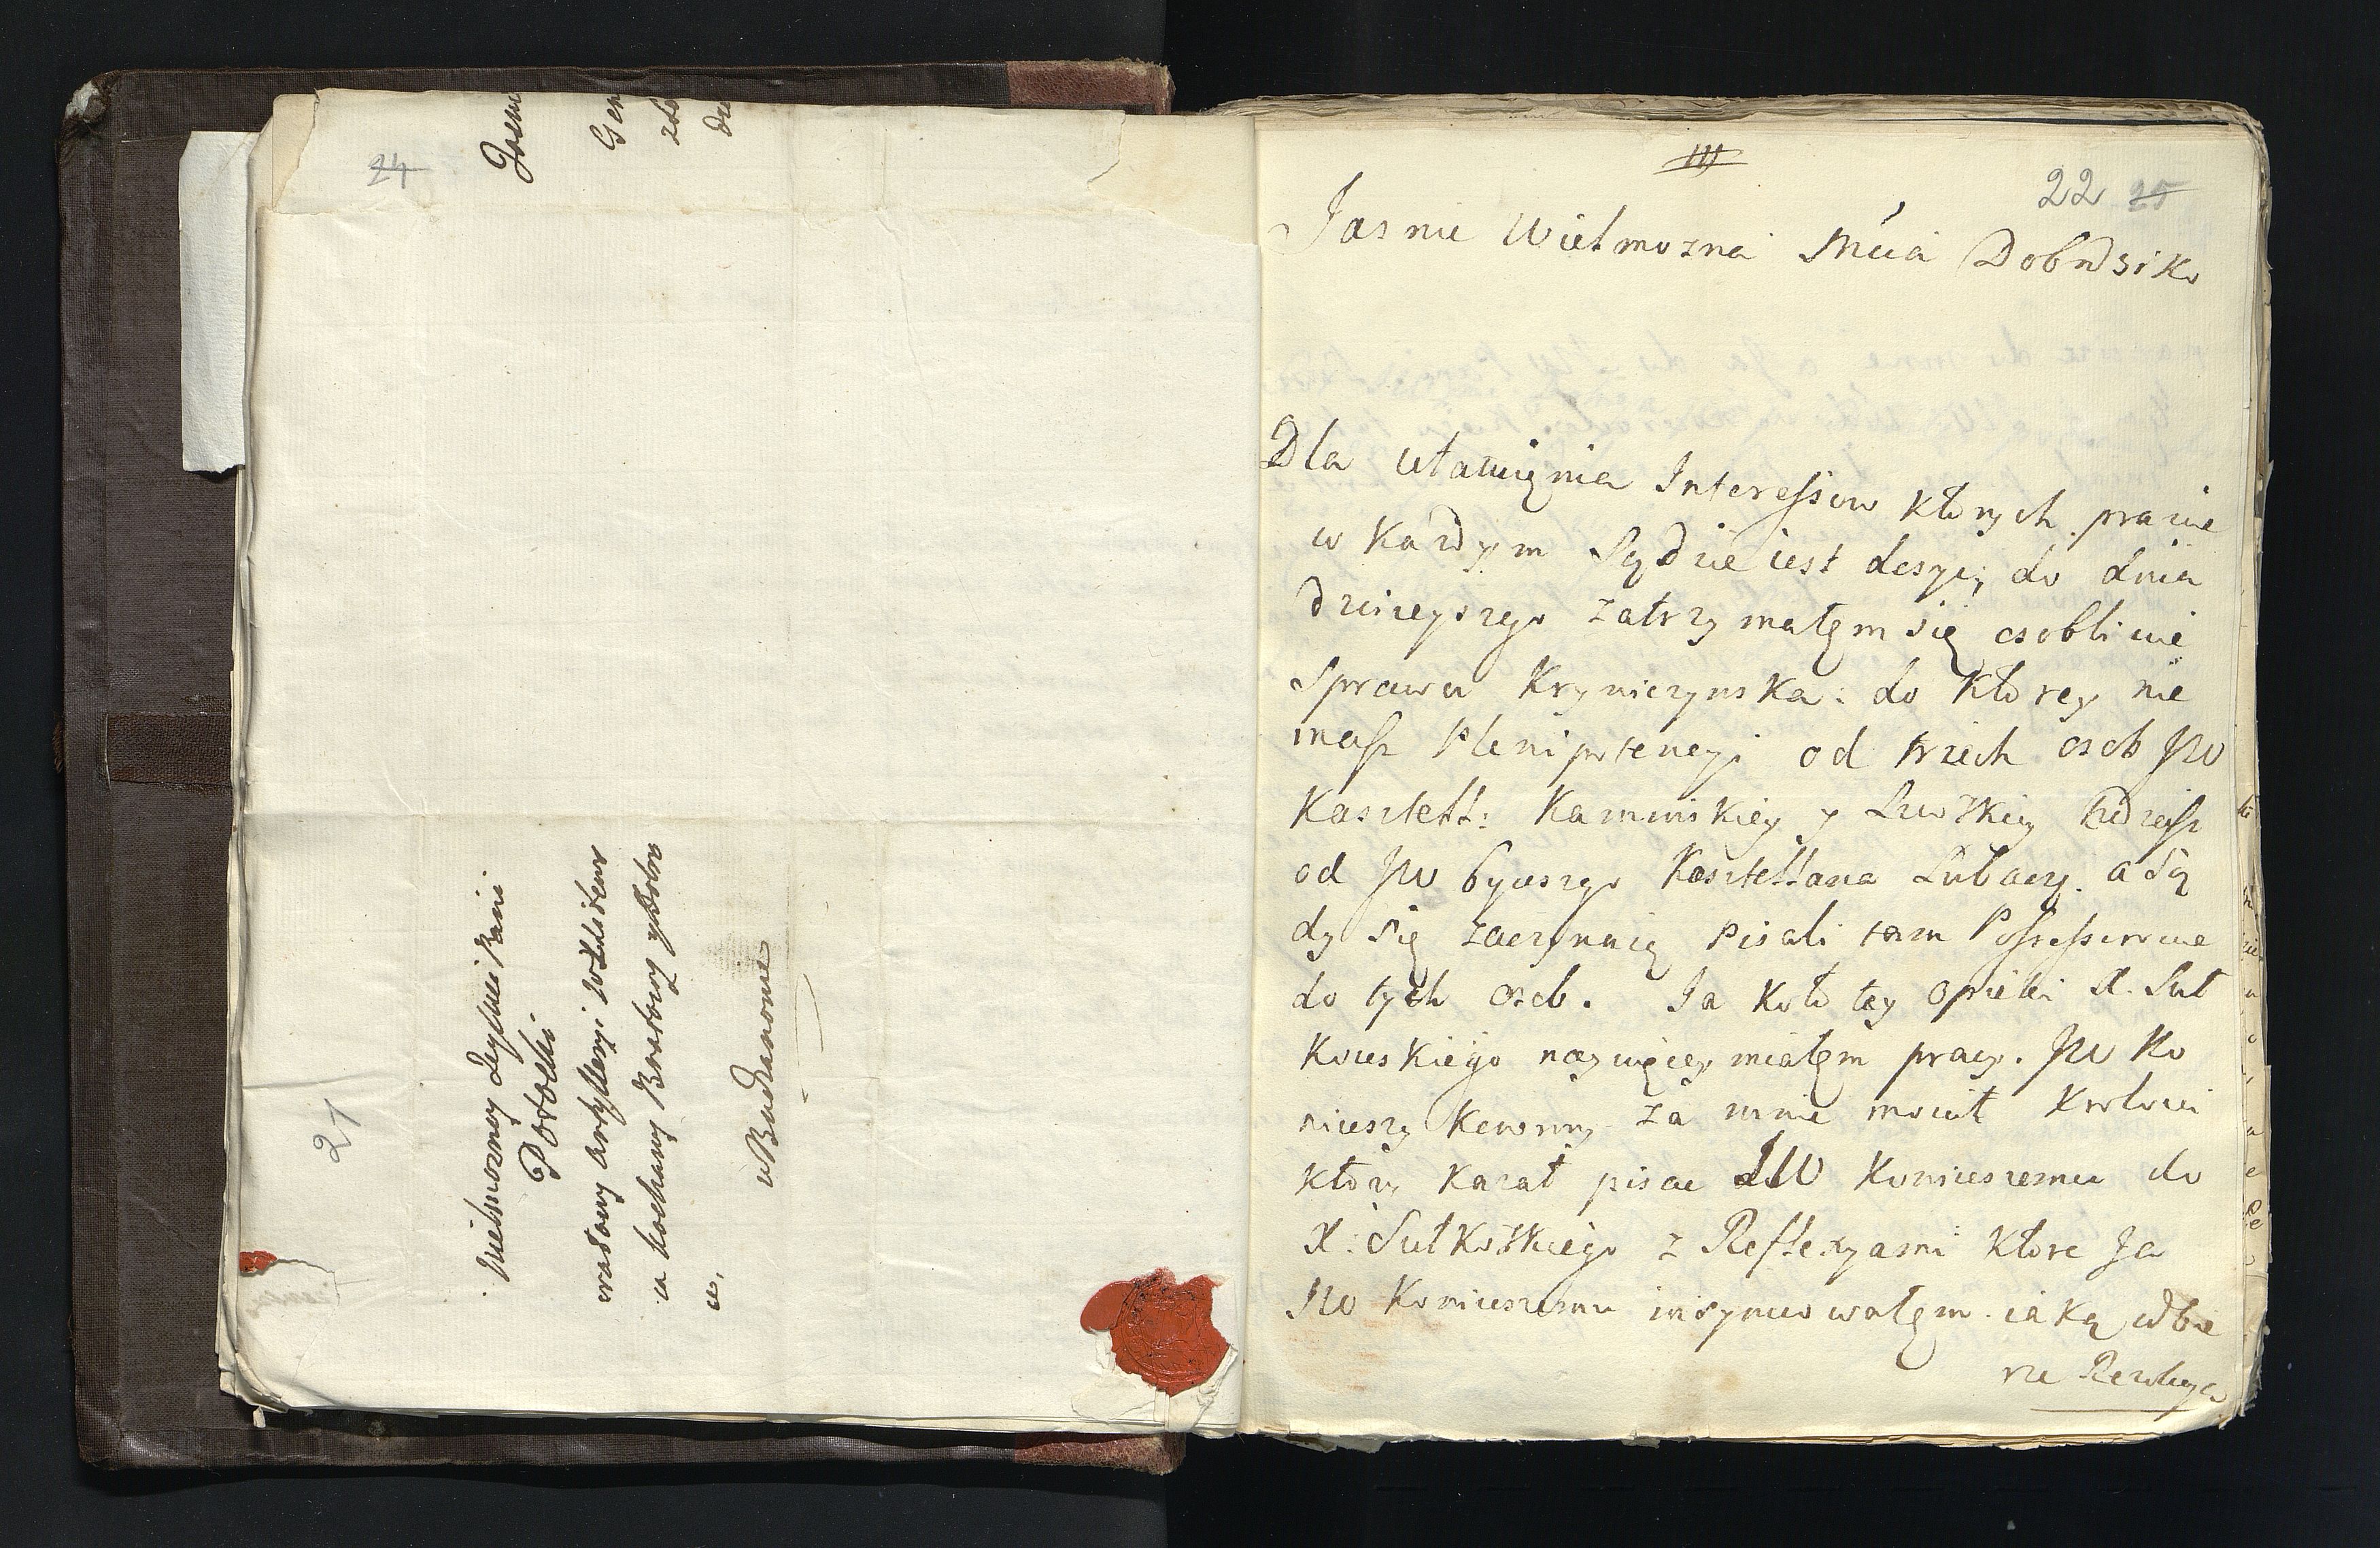 24
Jasnie
Wielmozney Jeymci Pani
Potocki
Gen
erałowy Artylleryi W X Litewo
zło
ia kochaney Bratowy y Dobro
dzi
ce,
w Buchanowie
21
III
22 25
Jasnie Wielmozna Mcia Dobrdziko
Dla ułatwięnia Interessow ktorych prawie
w każdym Sądzie iest dosyć, do dnia
dzisieyszego zatrzymałęm się osobliwie
Sprawa Kryniczynska: do ktorey nie
masz Plenipotencyi od trzech osob JW
Kasztell: Kaminskiey y Lwoskiey tudziesz
od JW bywszego Kasztellana Lubacz. a Są
dy się zaczynaią pisali tam Possessorowie
do tych osob. Ja koło tey opieki X. Suł
kowskiego naywięcey miałęm pracy. JW Ko
niuszy Koronny za mnie mowił Krolowi
ktory kazał pisac JW Koniuszemu do
X: Sułkoskiego z Reflexyami ktore Ja
JW Koniuszemu insynuowałęm. iaką odbie
rze Rezolucya